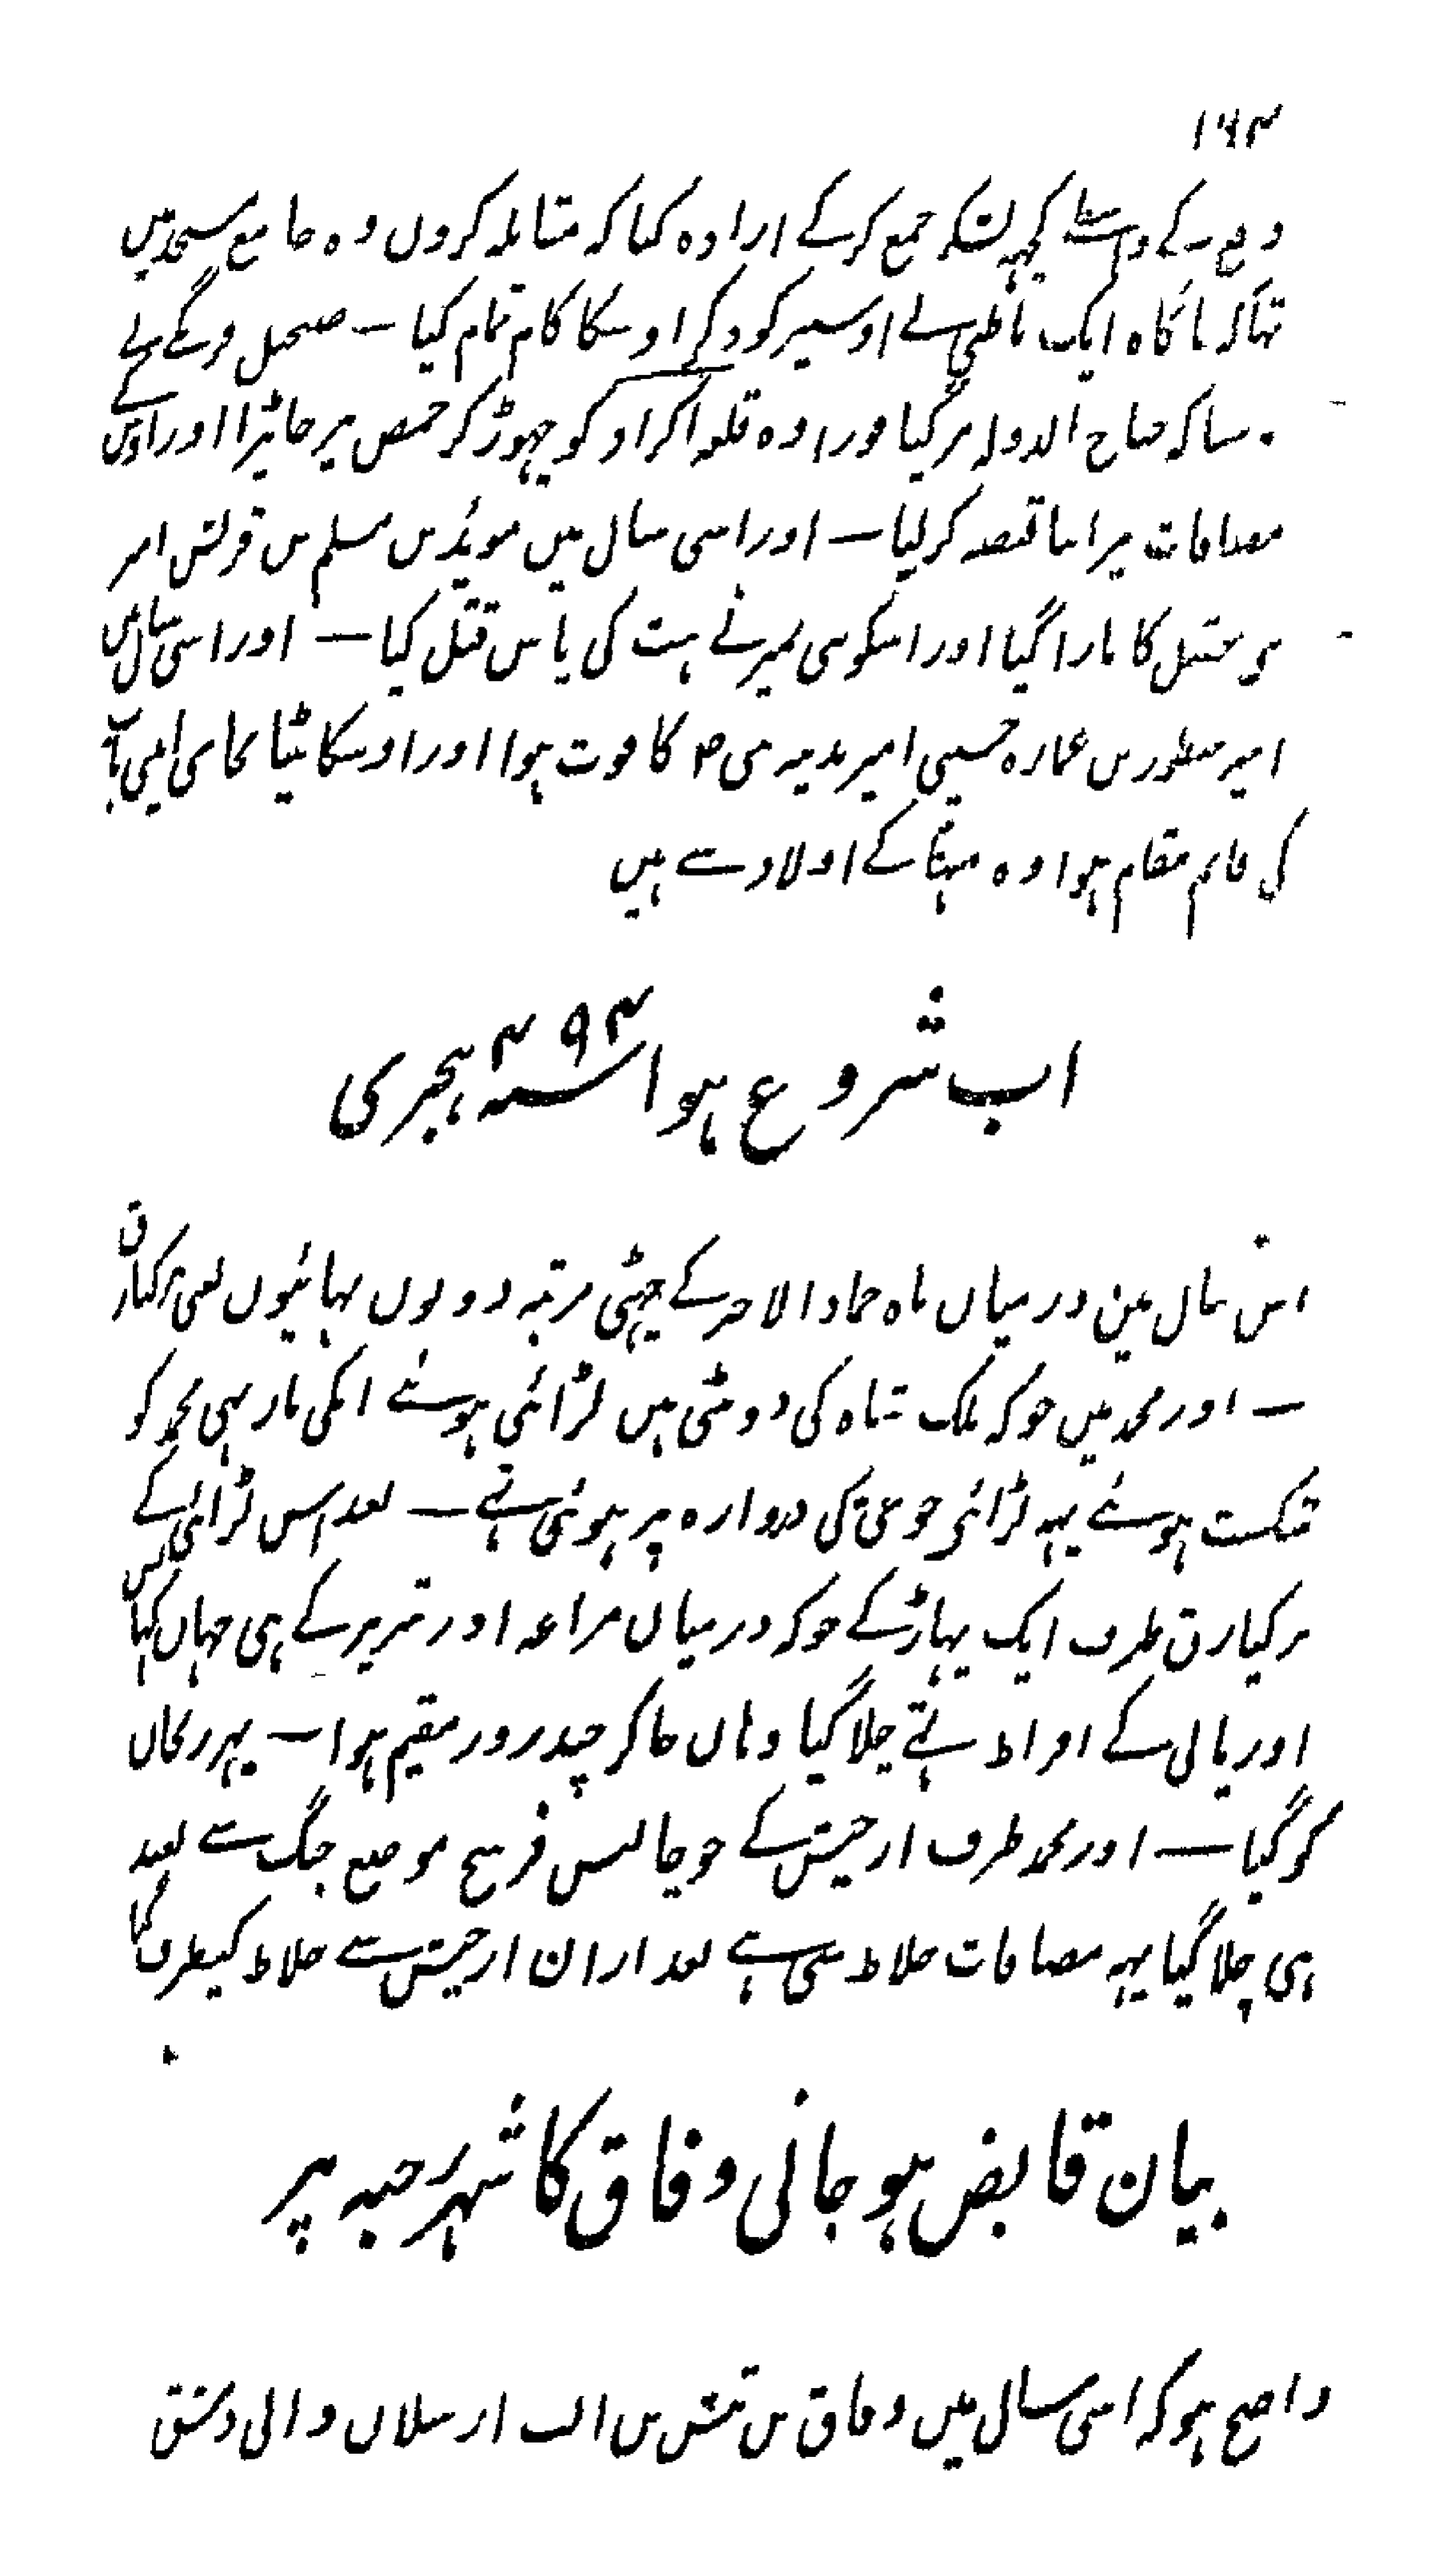 ۱۶۴
دفع کے واسطے کچہہ لشکر جمع کرکے ارادہ کیا کہ مقابلہ کروں وہ جامع مسجد میں
تہا کہ ناگاہ ایک باطنی نے اوسپر کود کر اوسکا کام تمام کیا — صنجیل فرنگے نے
سنا کہ جناح الدولہ مرگیا فورا وہ قلعہ اکراد کو چہوڑ کر حمص پر جا پڑا اور اوس
مضافات پر اپنا قبضہ کر لیا — اور اسی سال میں موید بن مسلم بن قریش امیر
بنی عقیل کا مارا گیا اور اسکو بنی نمیر نے ہیت کی پاس قتل کیا — اور اسی سال میں
امیر منظور بن عمارہ حسینی امیر مدینہ نبی ص کا فوت ہوا اور اوسکا بیٹا بجای اپنی باپ
کی قایم مقام ہوا وہ مہنا کے اولاد سے ہیں
اب شروع ہوا سنہ ۴۹۴ ہجری
اس سال مین درمیان ماہ جماد الاخر کے چہٹی مرتبہ دونوں بہائیوں یعنی برکیارق
— اور محمد میں جو کہ ملک شاہ کی دو بیٹی ہیں لڑائی ہوئے ابکی بار بہی محمد کو
شکست ہوئے یہہ لڑائی خوئی کی دروازہ پر ہوئی تہے — بعد اس لڑائی کے
برکیارق طرف ایک پہاڑ کے جو کہ درمیان مراغہ اور تبریز کے ہی جہاں گہانس
اور پانی کے افراط تہے چلا گیا وہاں جا کر چند روز مقیم ہوا — پہر زنجان
کو گیا — اور محمد طرف ارجیش کے جو چالیس فرسخ موضع جنگ سے بعید
ہی چلا گیا یہہ مضافات خلاط سی ہے بعد ازان ارجیش سے خلاط کیطرف گیا
بیان قابض ہو جانی دقاق کا شہر رحبہ پر
واضح ہو کہ اسی سال میں دقاق بن تتش بن الب ارسلان والی دمشق